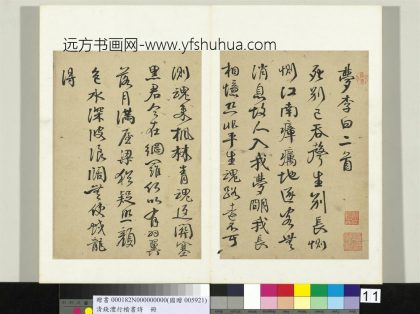 远方书画网-www.yfshuhua.com
夢李白二首
死別已吞聲生別長惻
惻江南瘴癘地逐客無
消息故人入我夢明我長
相憶恐非平生魂路遠不可
測魂來楓林青魂返關塞
黑君今在網羅何以有羽翼
落月滿屋梁猶疑照顏
色水深波浪闊無使蛟龍
得
贈書 000182N000000000(國贈 005921)
清錢灃行楷書詩 冊
11